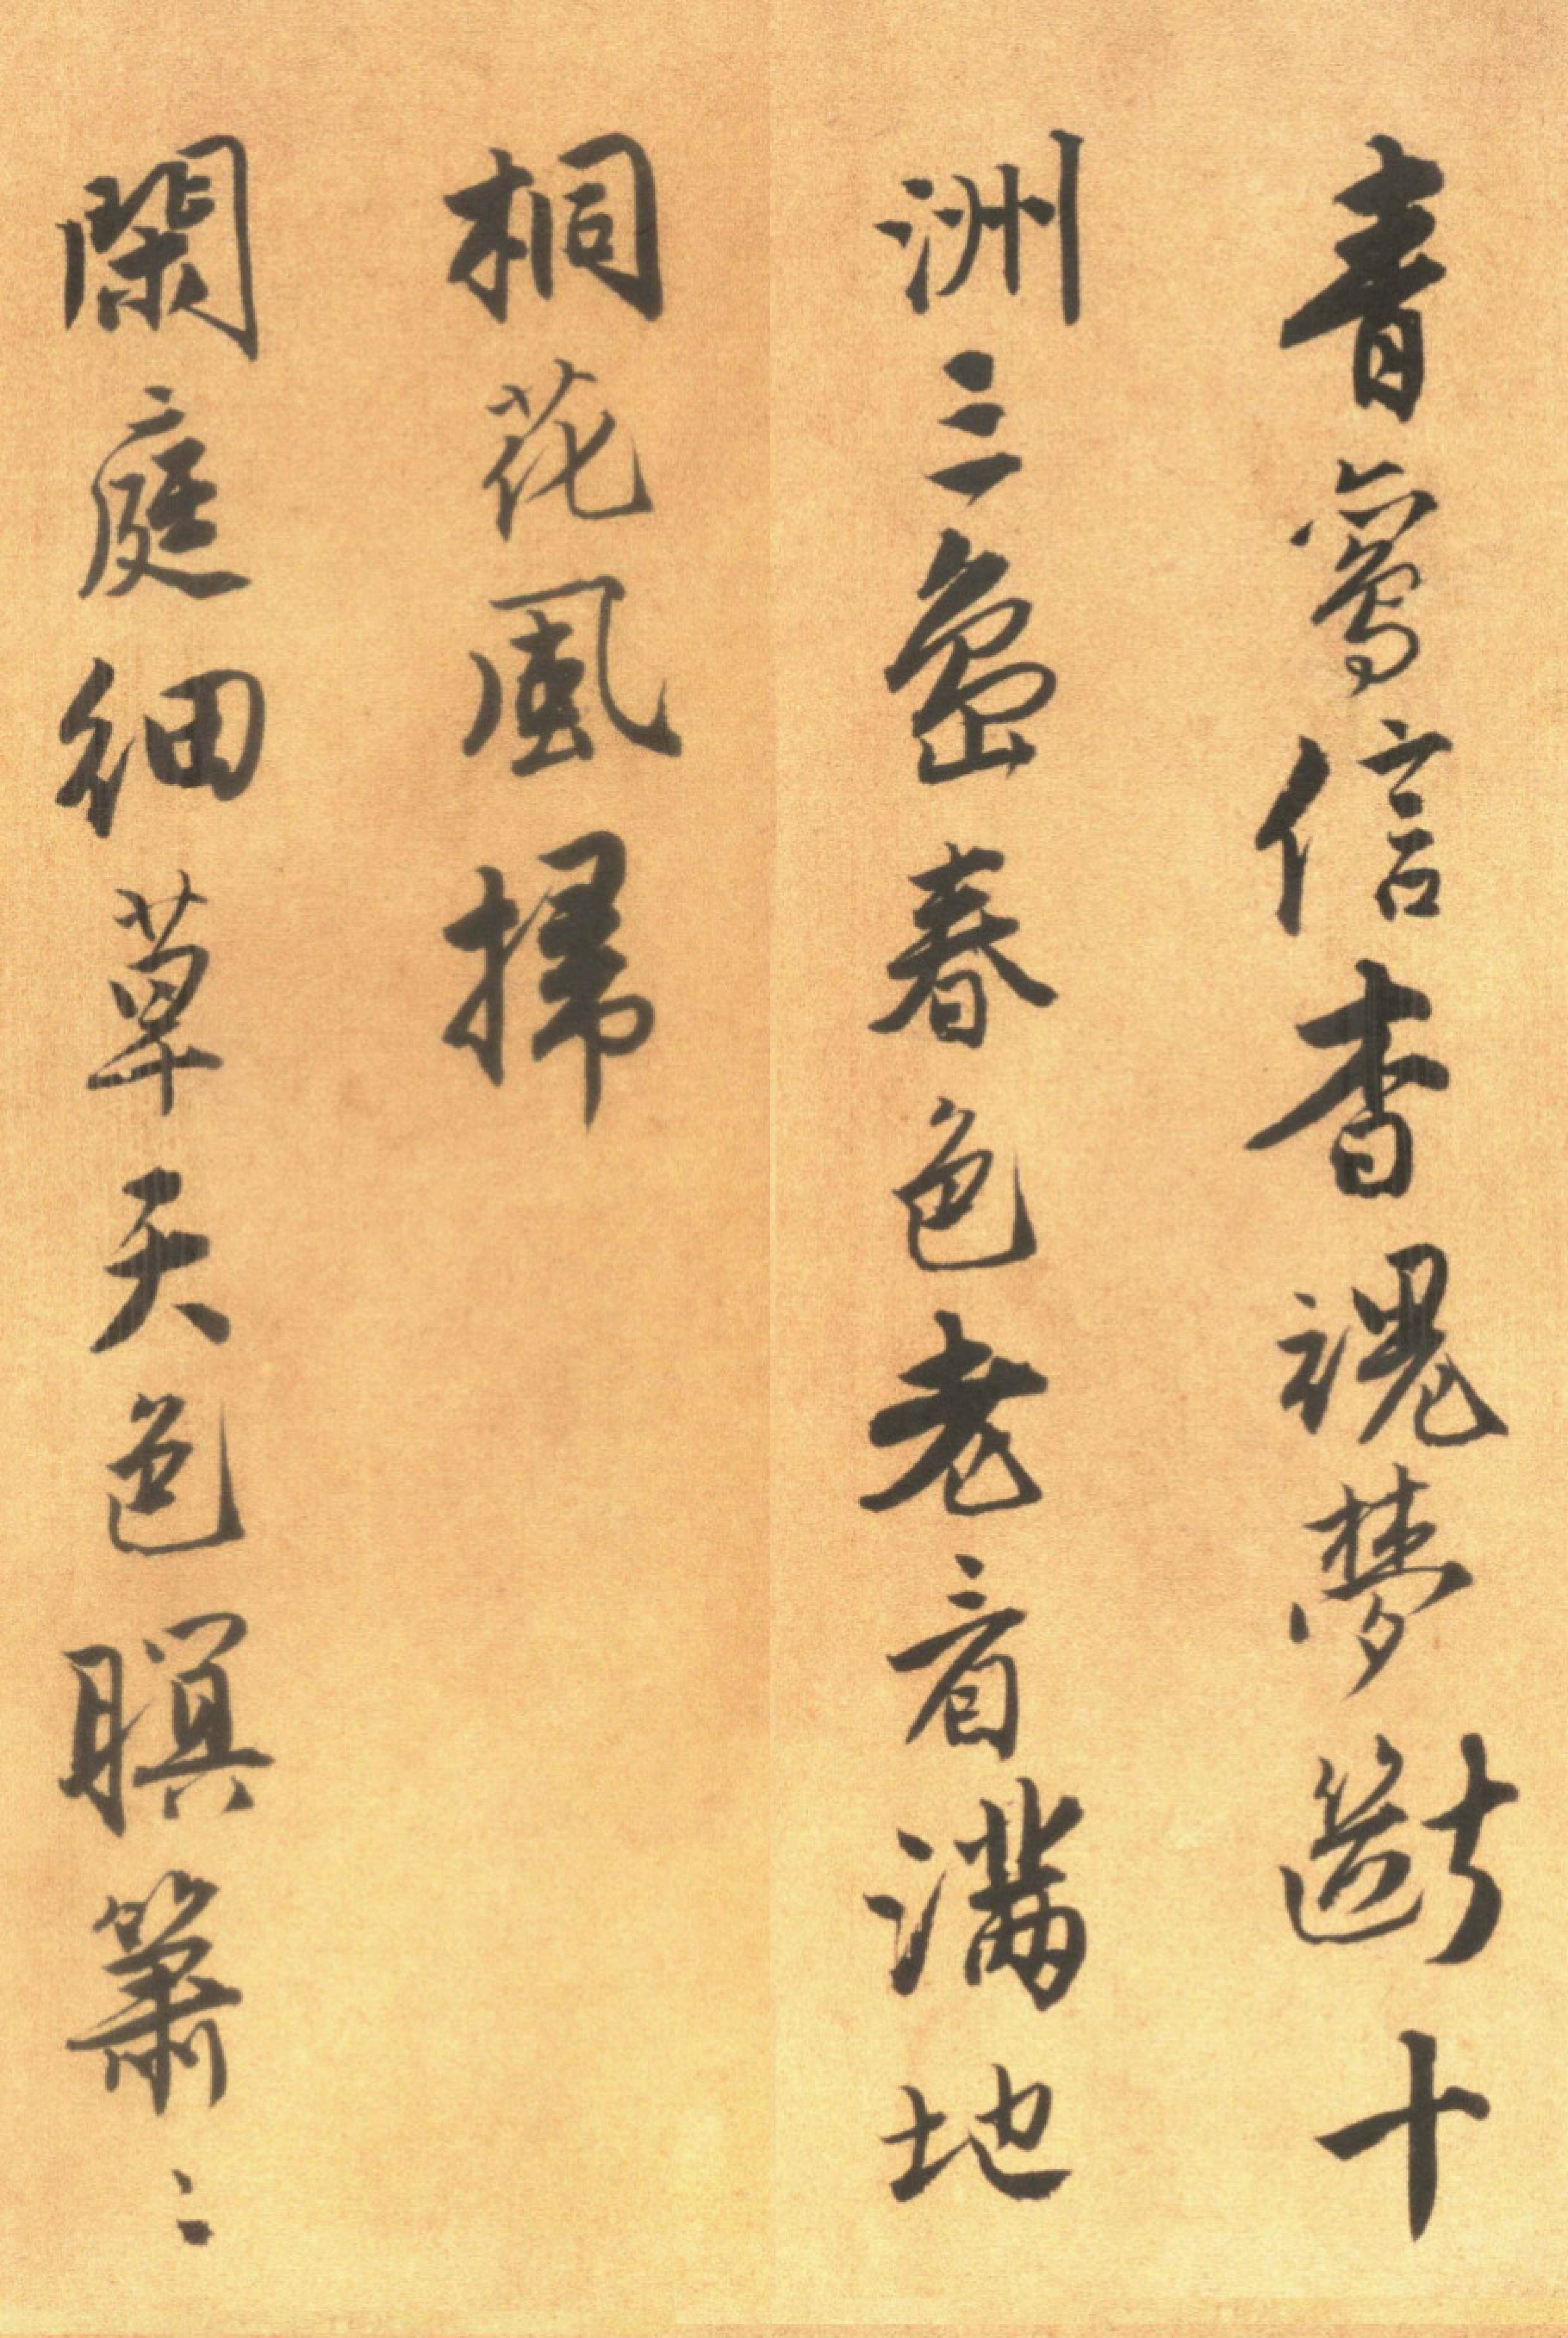 青鸞信杳魂夢斷十
洲三島春色老看滿地
桐花風掃
閑庭細草天色瞑簫〻